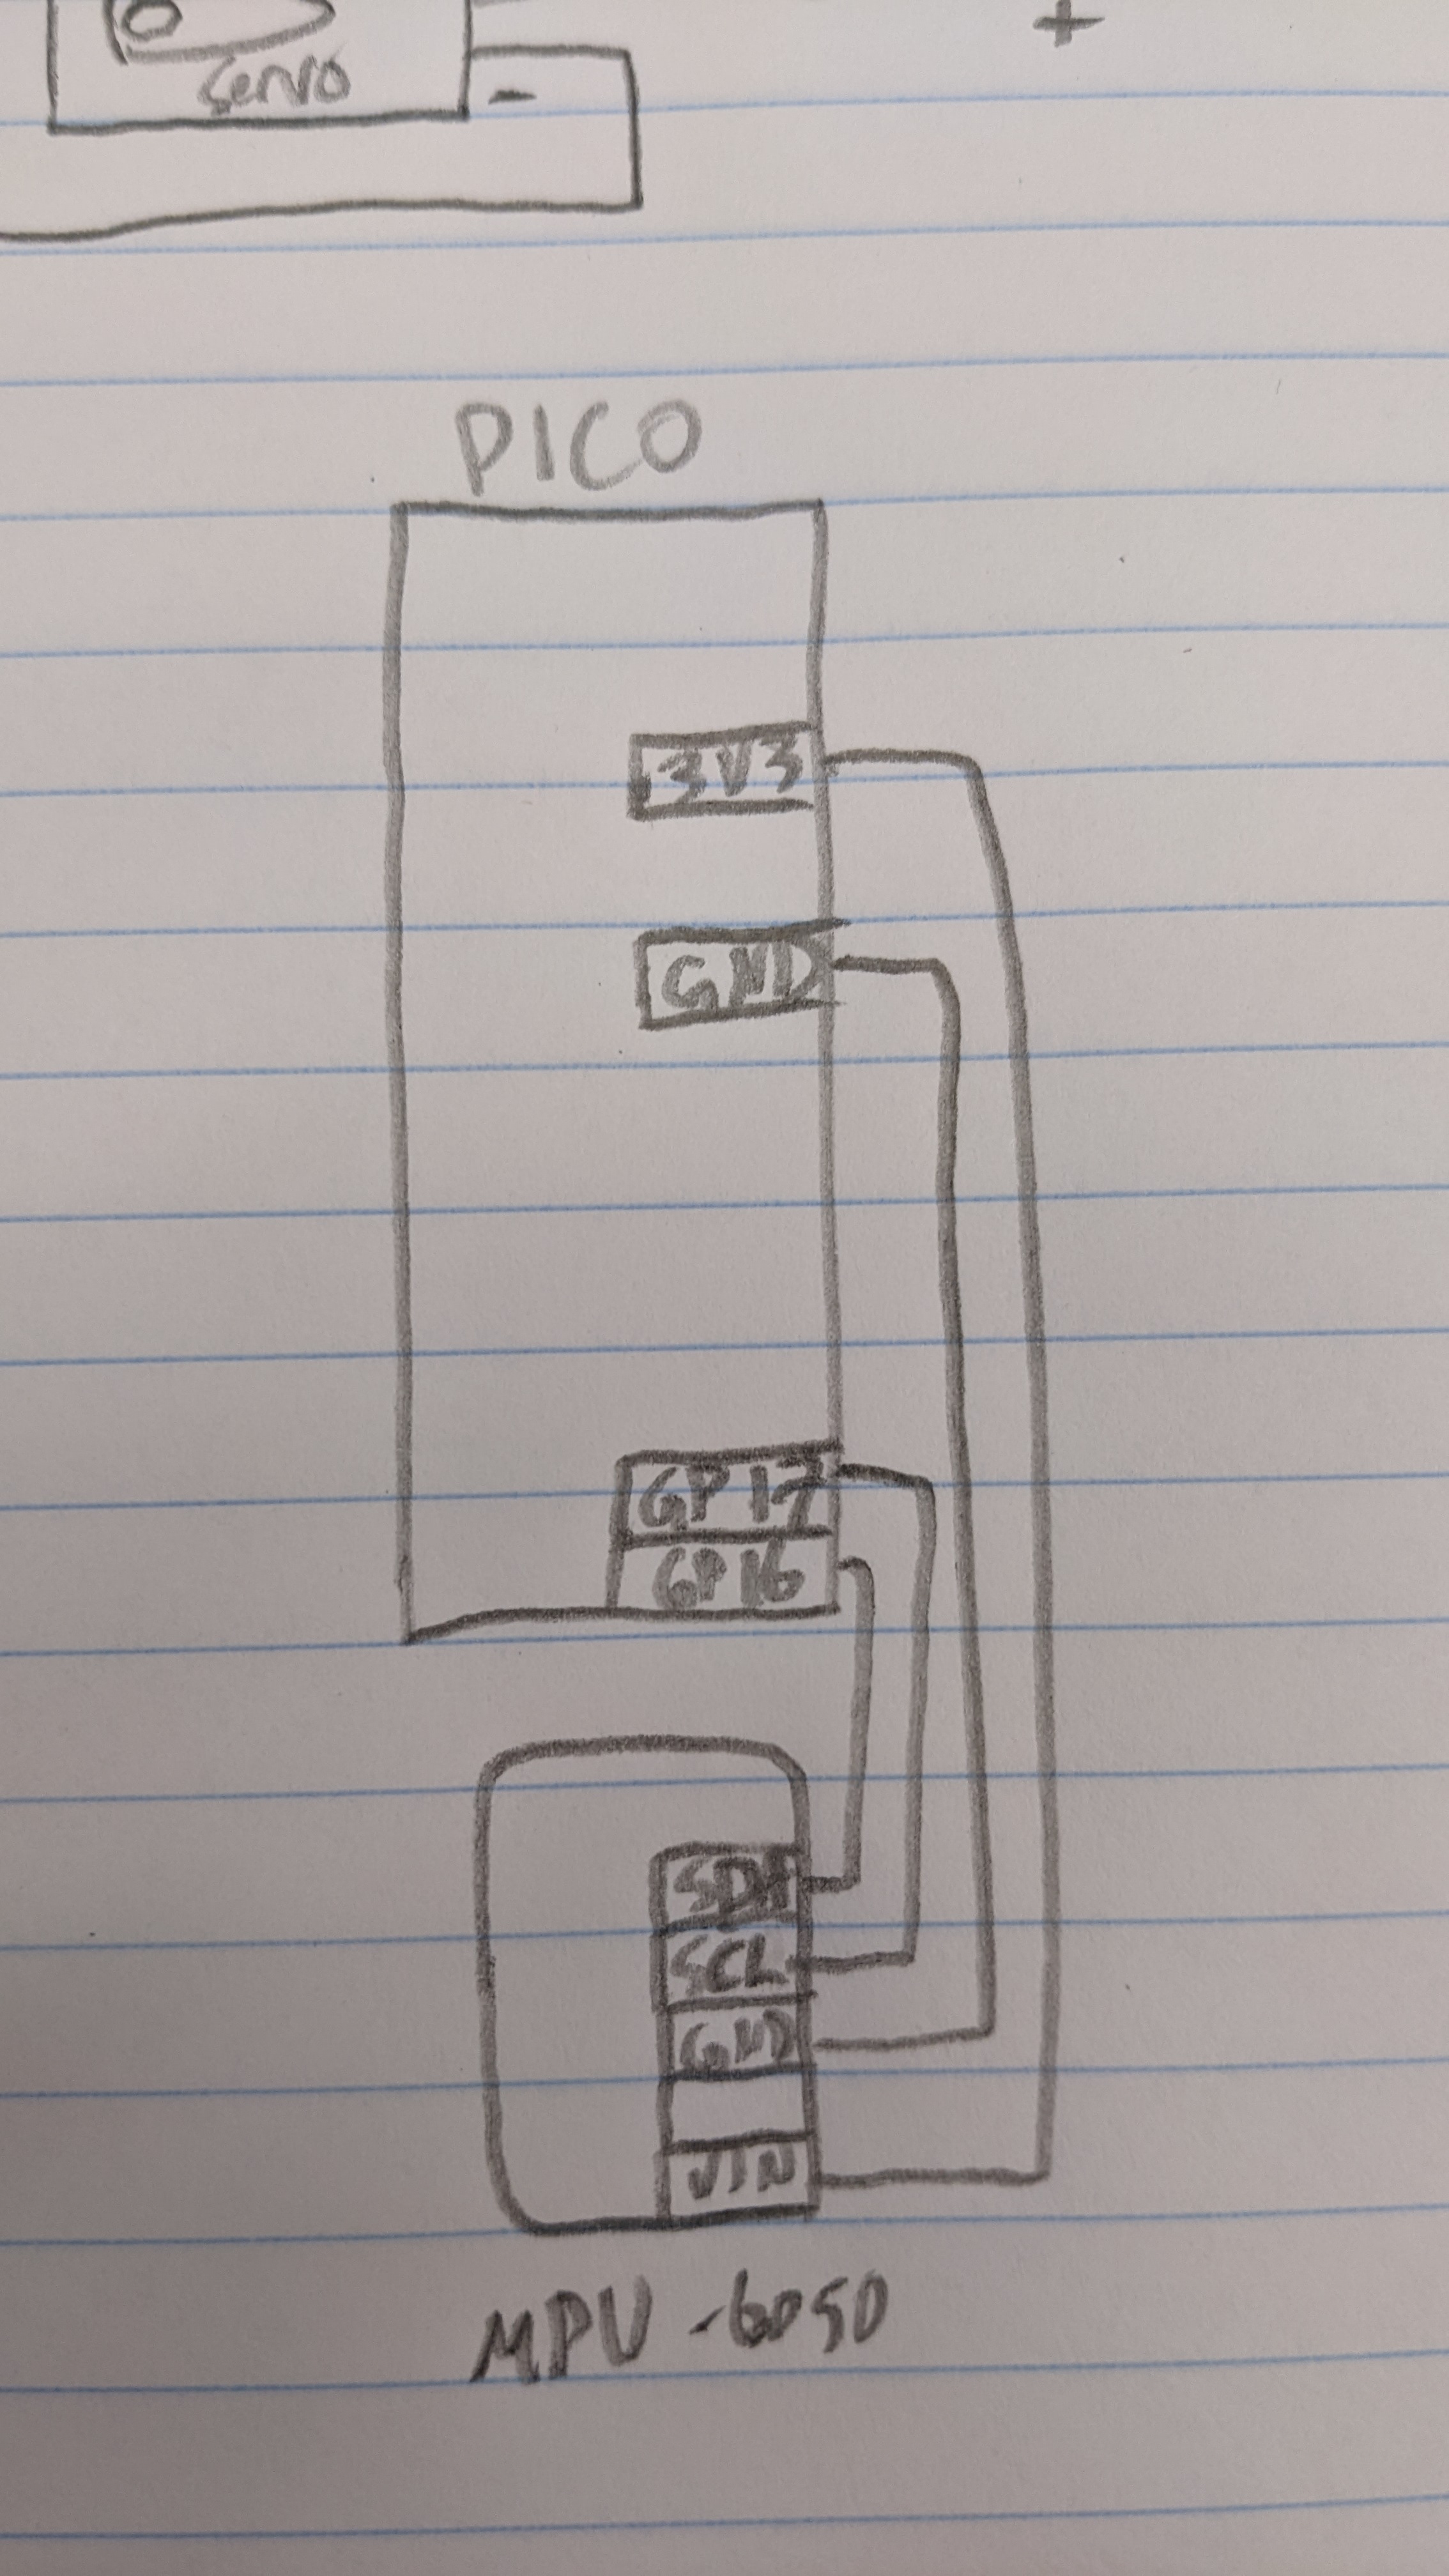 servo
-
+
PICO
3V3
GND
GP17
GP16
SDA
SCL
GND
VIN
MPU-6050